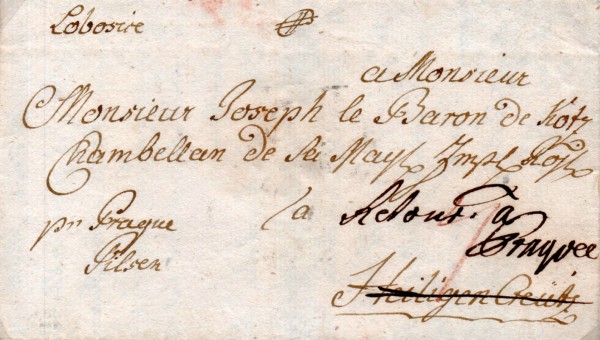 Lobosice
a Monsieur
Monsieur Joseph le Baron de Kotz
Chambellan de Sa Maj Imp Roy
pr Prague
Pilsen
a Retour a
Prague
Heiligen Creütz